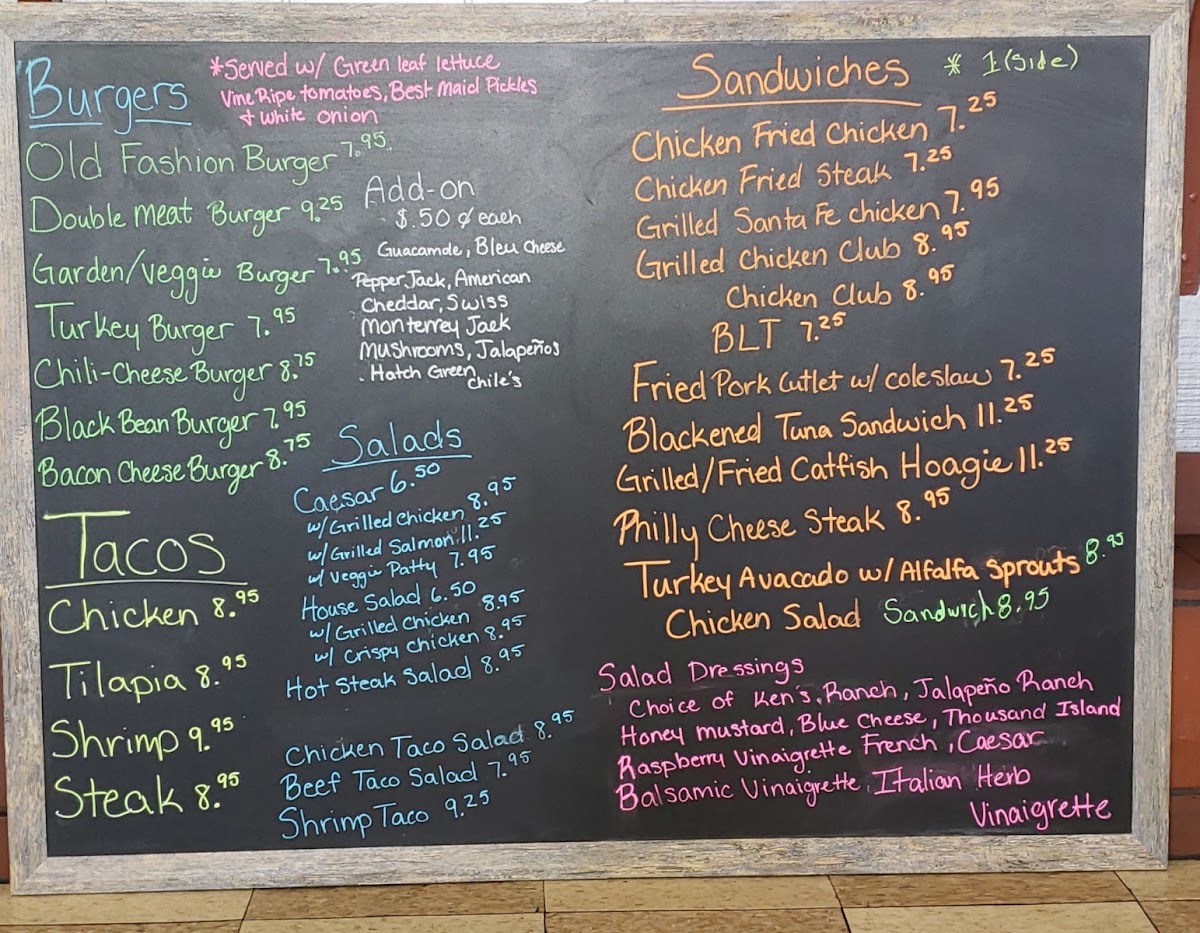 Burgers
*Served w/ Green leaf lettuce
Vine Ripe tomatoes, Best Maid Pickles
+ White onion
Old Fashion Burger 7.95
Double meat Burger 9.25
Garden/Veggie Burger 7.95
Turkey Burger 7.95
Chili-Cheese Burger 8.75
Black Bean Burger 7.95
Bacon Cheese Burger 8.75
Add-on
$.50 ¢ each
Guacamole, Bleu Cheese
Pepper Jack, American
Cheddar, Swiss
Monterrey Jack
Mushrooms, Jalapeños
. Hatch Green
Chile's
Tacos
Chicken 8.95
Tilapia 8.95
Shrimp 9.95
Steak 8.95
Salads
Caesar 6.50
w/ Grilled Chicken 8.95
w/ Grilled Salmon 11.25
w/ Veggie Patty 7.95
House Salad 6.50
w/ Grilled Chicken 8.95
w/ Crispy Chicken 8.95
Hot Steak Salad 8.95
Chicken Taco Salad 8.95
Beef Taco Salad 7.95
Shrimp Taco 9.25
Sandwiches * 1 (side)
Chicken Fried Chicken 7.25
Chicken Fried Steak 7.25
Grilled Santa Fe chicken 7.95
Grilled Chicken Club 8.95
Chicken Club 8.95
BLT 7.25
Fried Pork Cutlet w/ coleslaw 7.25
Blackened Tuna Sandwich 11.25
Grilled/Fried Catfish Hoagie 11.25
Philly Cheese Steak 8.95
Turkey Avacado w/ Alfalfa Sprouts 8.95
Chicken Salad Sandwich 8.95
Salad Dressings
Choice of Ken's, Ranch, Jalapeño Ranch
Honey mustard, Blue Cheese, Thousand Island
Raspberry Vinaigrette French, Caesar
Balsamic Vinaigrette, Italian Herb
Vinaigrette